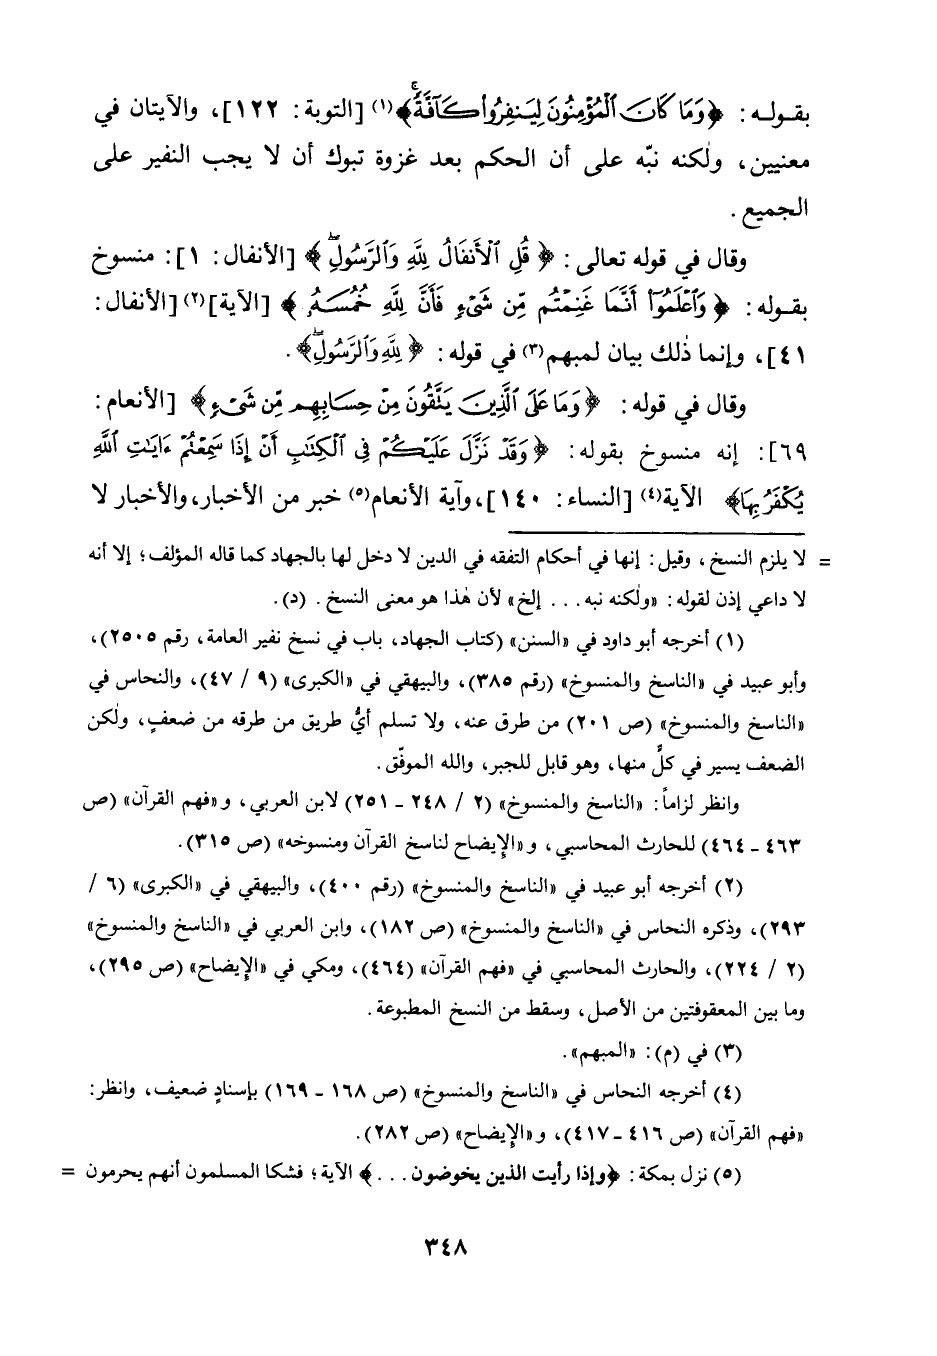 بقوله: ﴿وَمَا كَانَ ٱلْمُؤْمِنُونَ لِيَنفِرُوا۟ كَآفَّةً ۚ﴾(١) [التوبة: ١٢٢]، والآيتان في
معنيين، ولٰكنه نبّه على أن الحكم بعد غزوة تبوك أن لا يجب النفير على
الجميع.
وقال في قوله تعالى: ﴿قُلِ ٱلْأَنفَالُ لِلَّهِ وَٱلرَّسُولِ ۖ﴾ [الأنفال: ١]: منسوخ
بقوله: ﴿وَٱعْلَمُوٓا۟ أَنَّمَا غَنِمْتُم مِّن شَىْءٍ فَأَنَّ لِلَّهِ خُمُسَهُۥ﴾ [الآية](٢) [الأنفال:
٤١]، وإنما ذٰلك بيان لمبهم(٣) في قوله: ﴿لِلَّهِ وَٱلرَّسُولِ ۖ﴾.
وقال في قوله: ﴿وَمَا عَلَى ٱلَّذِينَ يَتَّقُونَ مِنْ حِسَابِهِم مِّن شَىْءٍ﴾ [الأنعام:
٦٩]: إنه منسوخ بقوله: ﴿وَقَدْ نَزَّلَ عَلَيْكُمْ فِى ٱلْكِتَٰبِ أَنْ إِذَا سَمِعْتُمْ ءَايَٰتِ ٱللَّهِ
يُكْفَرُ بِهَا﴾ الآية(٤) [النساء: ١٤٠]، وآية الأنعام(٥) خبر من الأخبار، والأخبار لا
= لا يلزم النسخ، وقيل: إنها في أحكام التفقه في الدين لا دخل لها بالجهاد كما قاله المؤلف؛ إلا أنه
لا داعي إذن لقوله: «ولٰكنه نبه... إلخ» لأن هٰذا هو معنى النسخ. (د).
(١) أخرجه أبو داود في «السنن» (كتاب الجهاد، باب في نسخ نفير العامة، رقم ٢٥٠٥)،
وأبو عبيد في «الناسخ والمنسوخ» (رقم ٣٨٥)، والبيهقي في «الكبرى» (٩ / ٤٧)، والنحاس في
«الناسخ والمنسوخ» (ص ٢٠١) من طرق عنه، ولا تسلم أيُّ طريق من طرقه من ضعفٍ، ولٰكن
الضعف يسير في كلٍّ منها، وهو قابل للجبر، والله الموفّق.
وانظر لزاماً: «الناسخ والمنسوخ» (٢ / ٢٤٨ - ٢٥١) لابن العربي، و«فهم القرآن» (ص
٤٦٣ - ٤٦٤) للحارث المحاسبي، و«الإيضاح لناسخ القرآن ومنسوخه» (ص ٣١٥).
(٢) أخرجه أبو عبيد في «الناسخ والمنسوخ» (رقم ٤٠٠)، والبيهقي في «الكبرى» (٦ /
٢٩٣)، وذكره النحاس في «الناسخ والمنسوخ» (ص ١٨٢)، وابن العربي في «الناسخ والمنسوخ»
(٢ / ٢٢٤)، والحارث المحاسبي في «فهم القرآن» (٤٦٤)، ومكي في «الإيضاح» (ص ٢٩٥)،
وما بين المعقوفتين من الأصل، وسقط من النسخ المطبوعة.
(٣) في (م): «المبهم».
(٤) أخرجه النحاس في «الناسخ والمنسوخ» (ص ١٦٨ - ١٦٩) بإسنادٍ ضعيف، وانظر:
«فهم القرآن» (ص ٤١٦ - ٤١٧)، و«الإيضاح» (ص ٢٨٢).
(٥) نزل بمكة: ﴿وإذا رأيت الذين يخوضون...﴾ الآية؛ فشكا المسلمون أنهم يحرمون =
٣٤٨